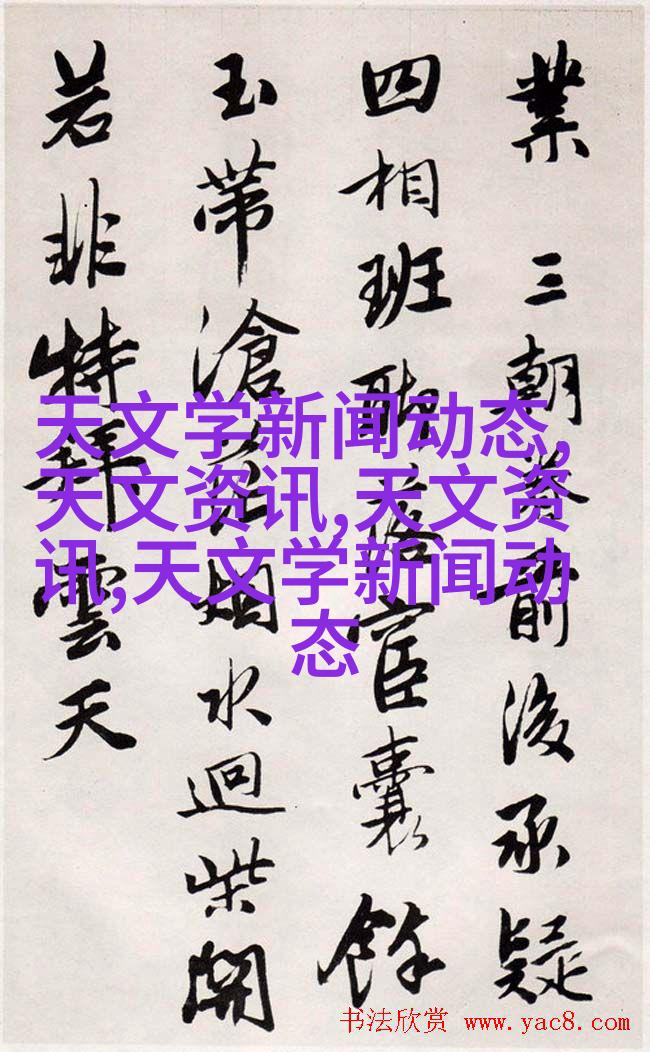 業 三朝前後承疑
四相班聯落宦囊餘
玉帶滄烟水迥柴開
若非特拜雲天
天文学新闻动态,
天文资讯,天文资
讯,天文学新闻动
态
书法欣赏 www.yac8.com